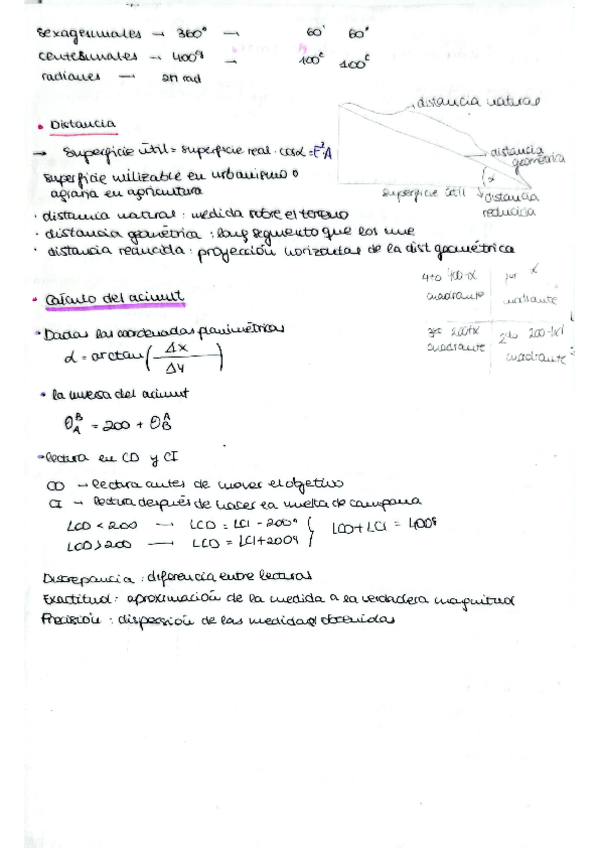 sexagesimales → 360° → 60' 60"
centesimales → 400g → 100c 100c
radianes → 2π rad
• Distancia
→ Superficie útil = superficie real · cosα = E²·A
superficie utilizable en urbanismo o
agraria en agricultura
· distancia natural : medida sobre el terreno
· distancia geométrica : long segmento que los une
· distancia reducida : proyección horizontal de la dist geométrica
distancia natural
distancia geométrica
α
superficie útil
distancia reducida
• Cálculo del acimut
• Dadas las coordenadas planimétricas
α = arctan(Δx/Δy)
4to 400-α cuadrante
1er α cuadrante
3er 200+α cuadrante
2do 200-|α| cuadrante
• la inversa del acimut
θ_A^B = 200 + θ_B^A
• lectura en CD y CI
CD → lectura antes de mover el objetivo
CI → lectura después de hacer la vuelta de campana
LCD < 200 → LCD = LCI - 200g
LCD > 200 → LCD = LCI + 200g
LCD + LCI = 400g
Discrepancia : diferencia entre lecturas
Exactitud : aproximación de la medida a la verdadera magnitud
Precisión : dispersión de las medidas obtenidas